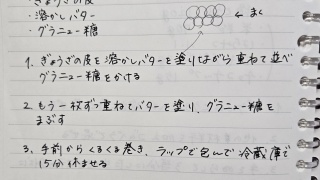 ・ぎょうざの皮
・溶かしバター
・グラニュー糖
← まく
1. ぎょうざの皮を溶かしバターを塗りながら重ねて並べ
グラニュー糖をかける
2. もう一枚ずつ重ねてバターを塗り、グラニュー糖を
まぶす
3. 手前からくるくる巻き、ラップで包んで冷蔵庫で
15分休ませる